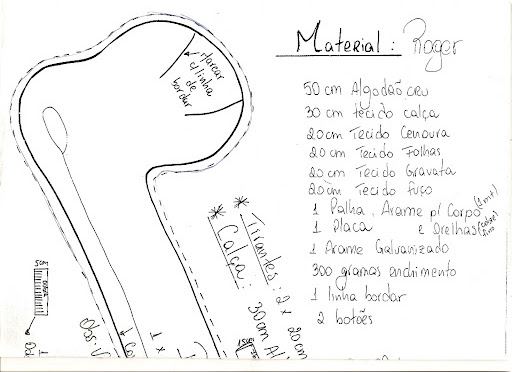 Material: Roger
50 cm Algodão cru
30 cm tecido calça
20cm Tecido Cenoura
20 cm Tecido Folhas
20 cm Tecido Gravata
20cm Tecido fuço
1 Palha, Arame p/ Corpo (1mt)
1 Placa e Orelhas
1 Arame Galvanizado
300 gramas enchimento
1 linha bordar
2 botões
Marcar
c/linha
de
bordar
* Tirantes: 2 x 20cm
* Calça: 30cm Al
1 x
Obs:
5cm